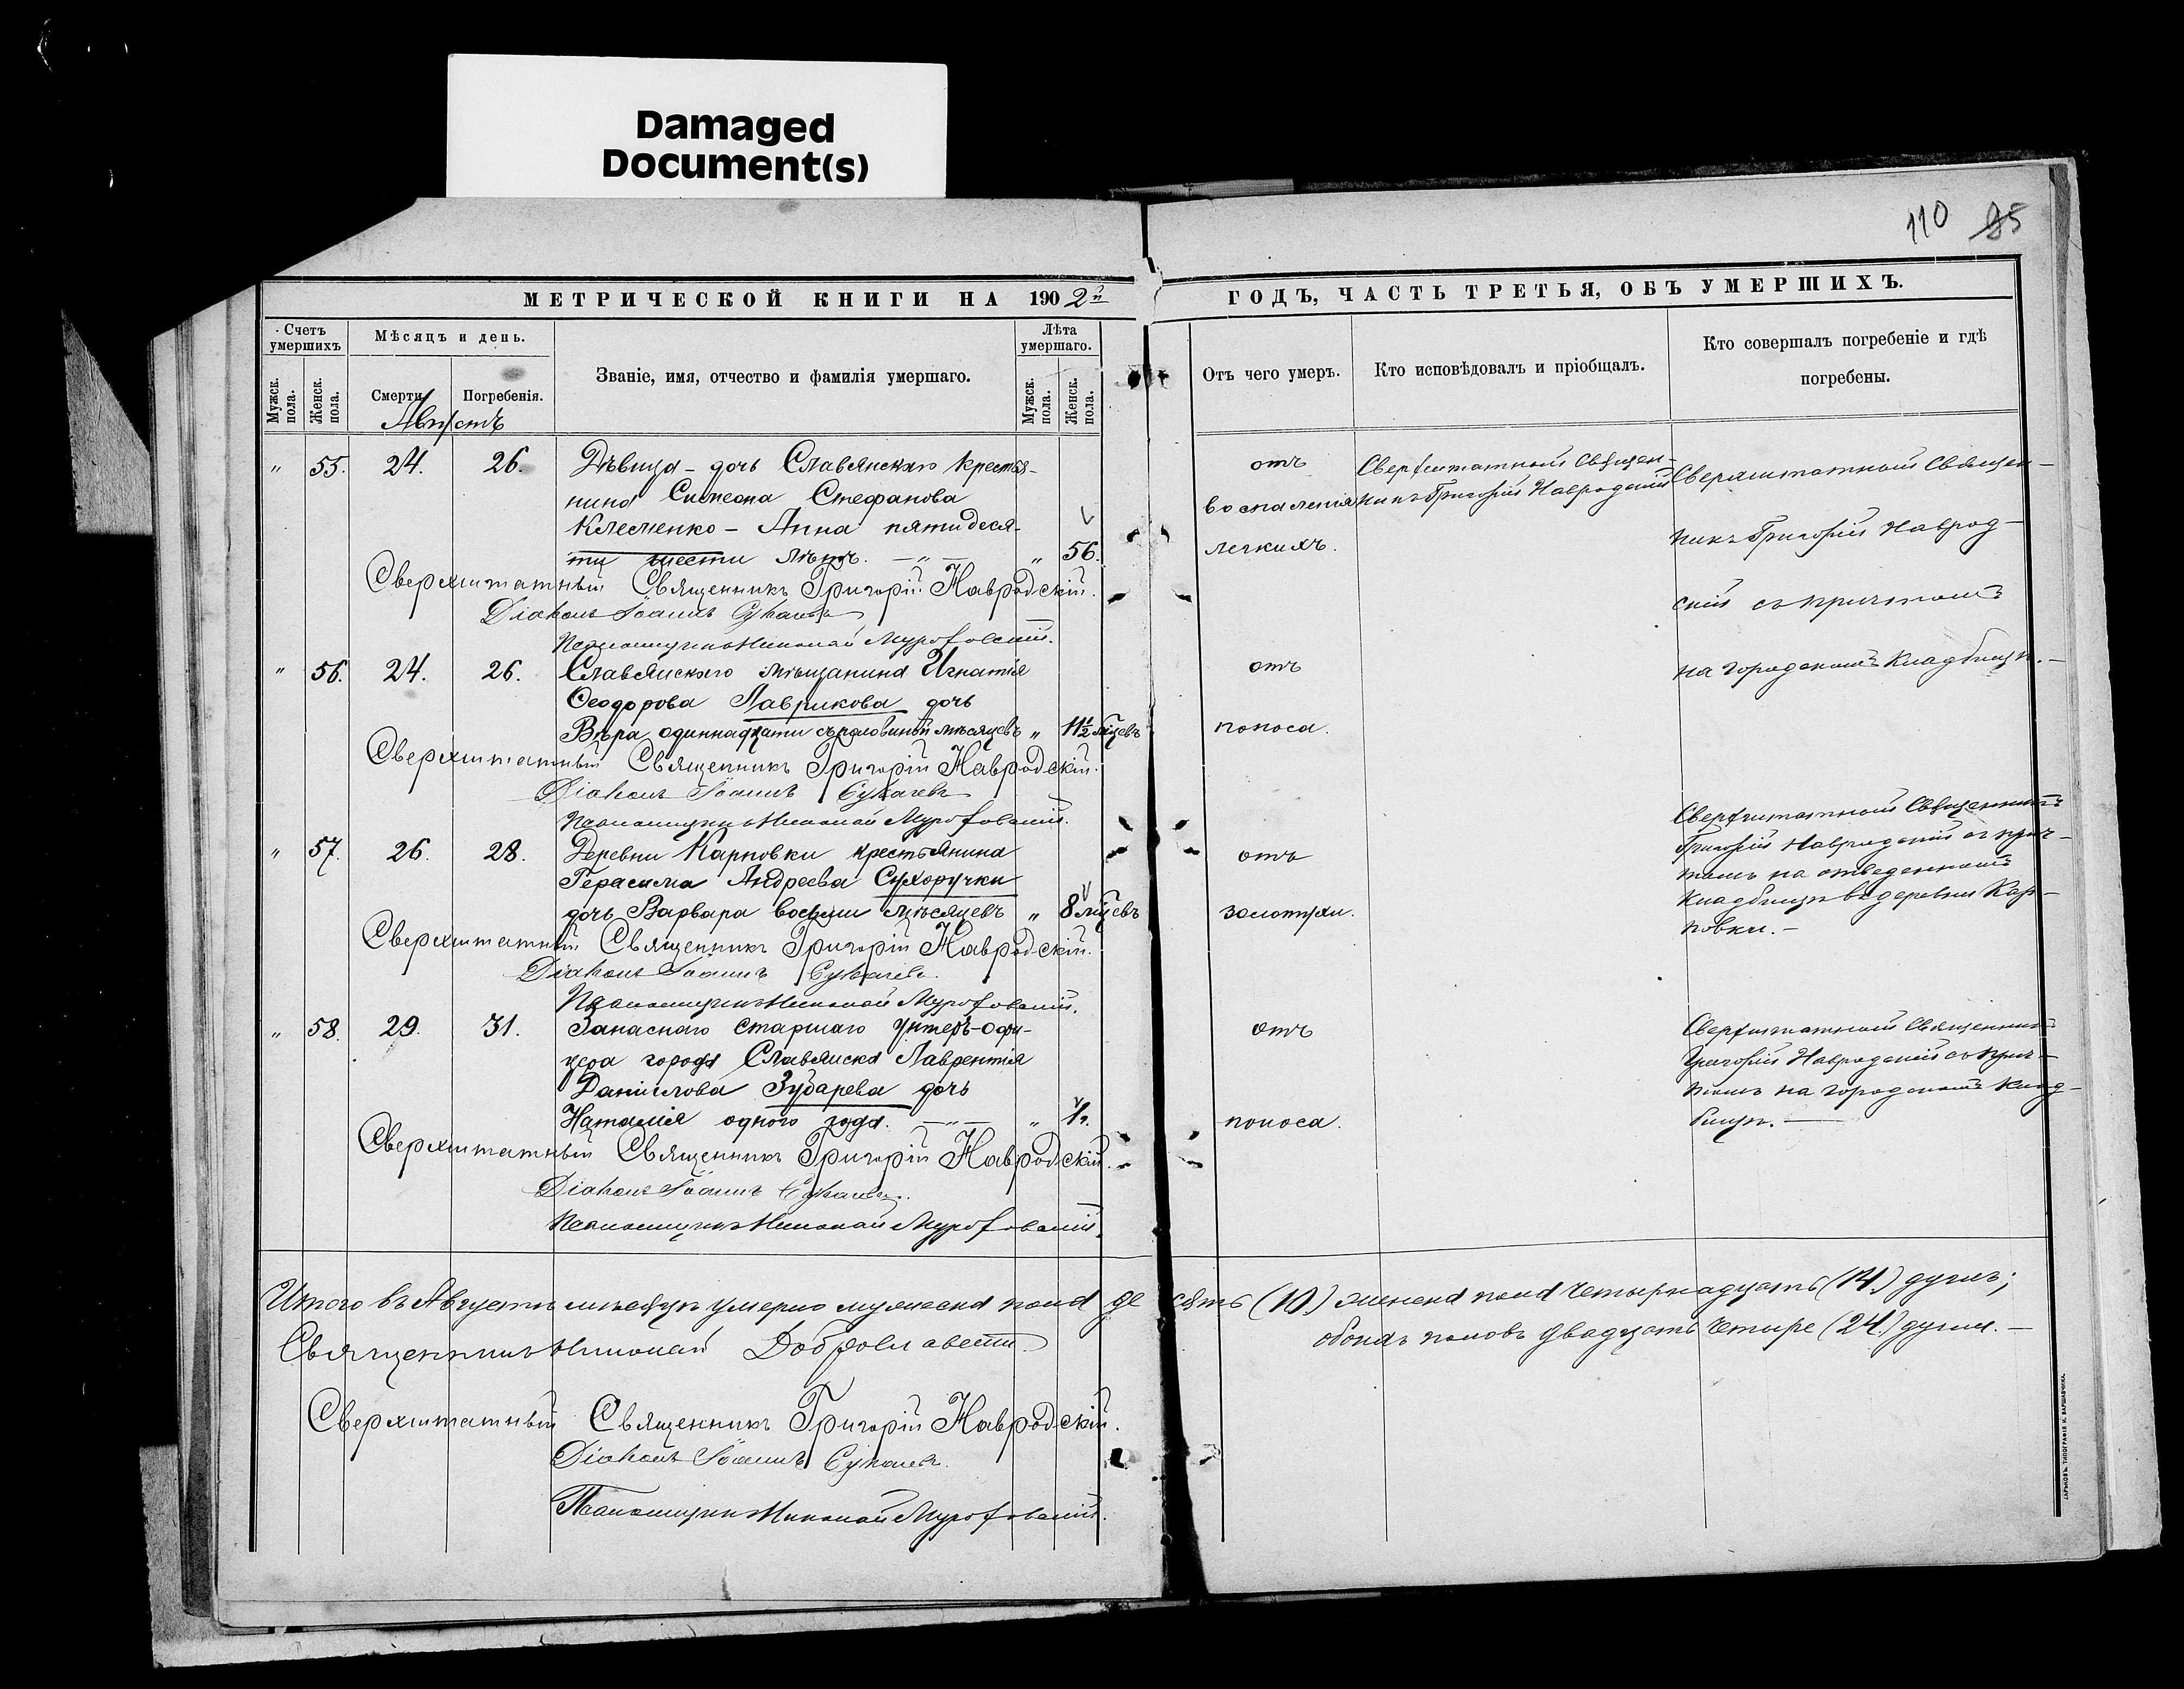 Damaged
Document(s)
110 85
МЕТРИЧЕСКОЙ КНИГИ НА 1902й
ГОДЪ, ЧАСТЬ ТРЕТЬЯ, ОБЪ УМЕРШИХЪ.
Счетъ умершихъ
Мужск. пола.
Женск. пола.
Мѣсяцъ и день.
Смерти.
Погребенія.
Званіе, имя, отчество и фамилія умершаго.
Лѣта умершаго.
Мужск. пола.
Женск. пола.
Отъ чего умеръ.
Кто исповѣдовалъ и пріобщалъ.
Кто совершалъ погребеніе и гдѣ
погребены.
Августъ
" 55. 24. 26. Дѣвица - дочь Славянскаго крестья-
нина Симеона Стефанова
Клесменко - Анна пятидеся-
ти шести лѣтъ. —"— " 56.
отъ
воспаленія
легкихъ.
Сверхштатный Священ-
никъ Григорій Навродскій
Сверхштатный Священ-
никъ Григорій Наврод-
скій съ причтомъ
на городскомъ кладбищѣ. -
Сверхштатный Священникъ Григорій Навродскій.
Діаконъ Іоаннъ Сукачевъ
Псаломщикъ Николай
" 56. 24. 26. Славянскаго мѣщанина Игнатія
Ѳеодорова Лаврикова дочь
Вѣра одиннадцати съ половиной мѣсяцевъ " 11½ мѣсцевъ
отъ
поноса.
Сверхштатный Священникъ Григорій Навродскій.
Діаконъ Іоаннъ Сукачевъ
Псаломщикъ Николай
" 57. 26. 28. Деревни Карповки крестьянина
Герасима Андреева Сухоручки
дочь Варвара восьми мѣсяцевъ " 8 мѣсцевъ
отъ
золотухи.
Сверхштатный Священникъ
Григорій Навродскій съ прич-
томъ на отведенномъ
кладбищѣ въ деревни Кар-
повки. -
Сверхштатный Священникъ Григорій Навродскій.
Діаконъ Іоаннъ Сукачевъ.
Псаломщикъ Николай
" 58. 29. 31. Запаснаго старшаго унтеръ-офи-
цера города Славянска Лаврентія
Даніилова Зубарева дочь
Наталія одного года. —"— " 1 г.
отъ
поноса.
Сверхштатный Священникъ
Григорій Навродскій съ прич-
томъ на городскомъ клад-
бищѣ. —
Сверхштатный Священникъ Григорій Навродскій.
Діаконъ Іоаннъ Сукачевъ.
Псаломщикъ Николай
Итого въ Августѣ мѣсяцѣ умерло мужеска пола десять (10) женска пола четырнадцать (14) душъ;
обоихъ половъ двадцать четыре (24) души. -
Священникъ Николай
Сверхштатный Священникъ Григорій Навродскій.
Діаконъ Іоаннъ Сукачевъ.
Псаломщикъ Николай
ХАРЬКОВЪ. ТИПОГРАФІЯ И. ВАРШАВЧИКА.